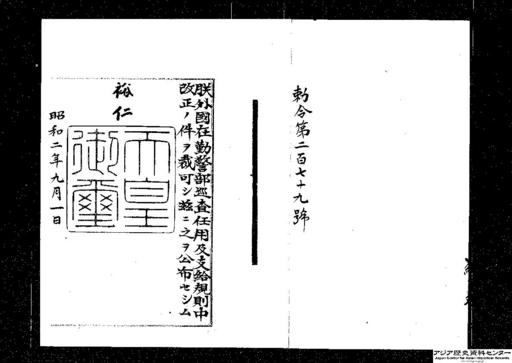 勅令第二百七十九號
朕外國在勤警部巡査任用及支給規則中
改正ノ件ヲ裁可シ茲ニ之ヲ公布セシム
裕仁
天皇
御璽
昭和二年九月一日
アジア歴史資料センター
Japan Center for Asian Historical Records